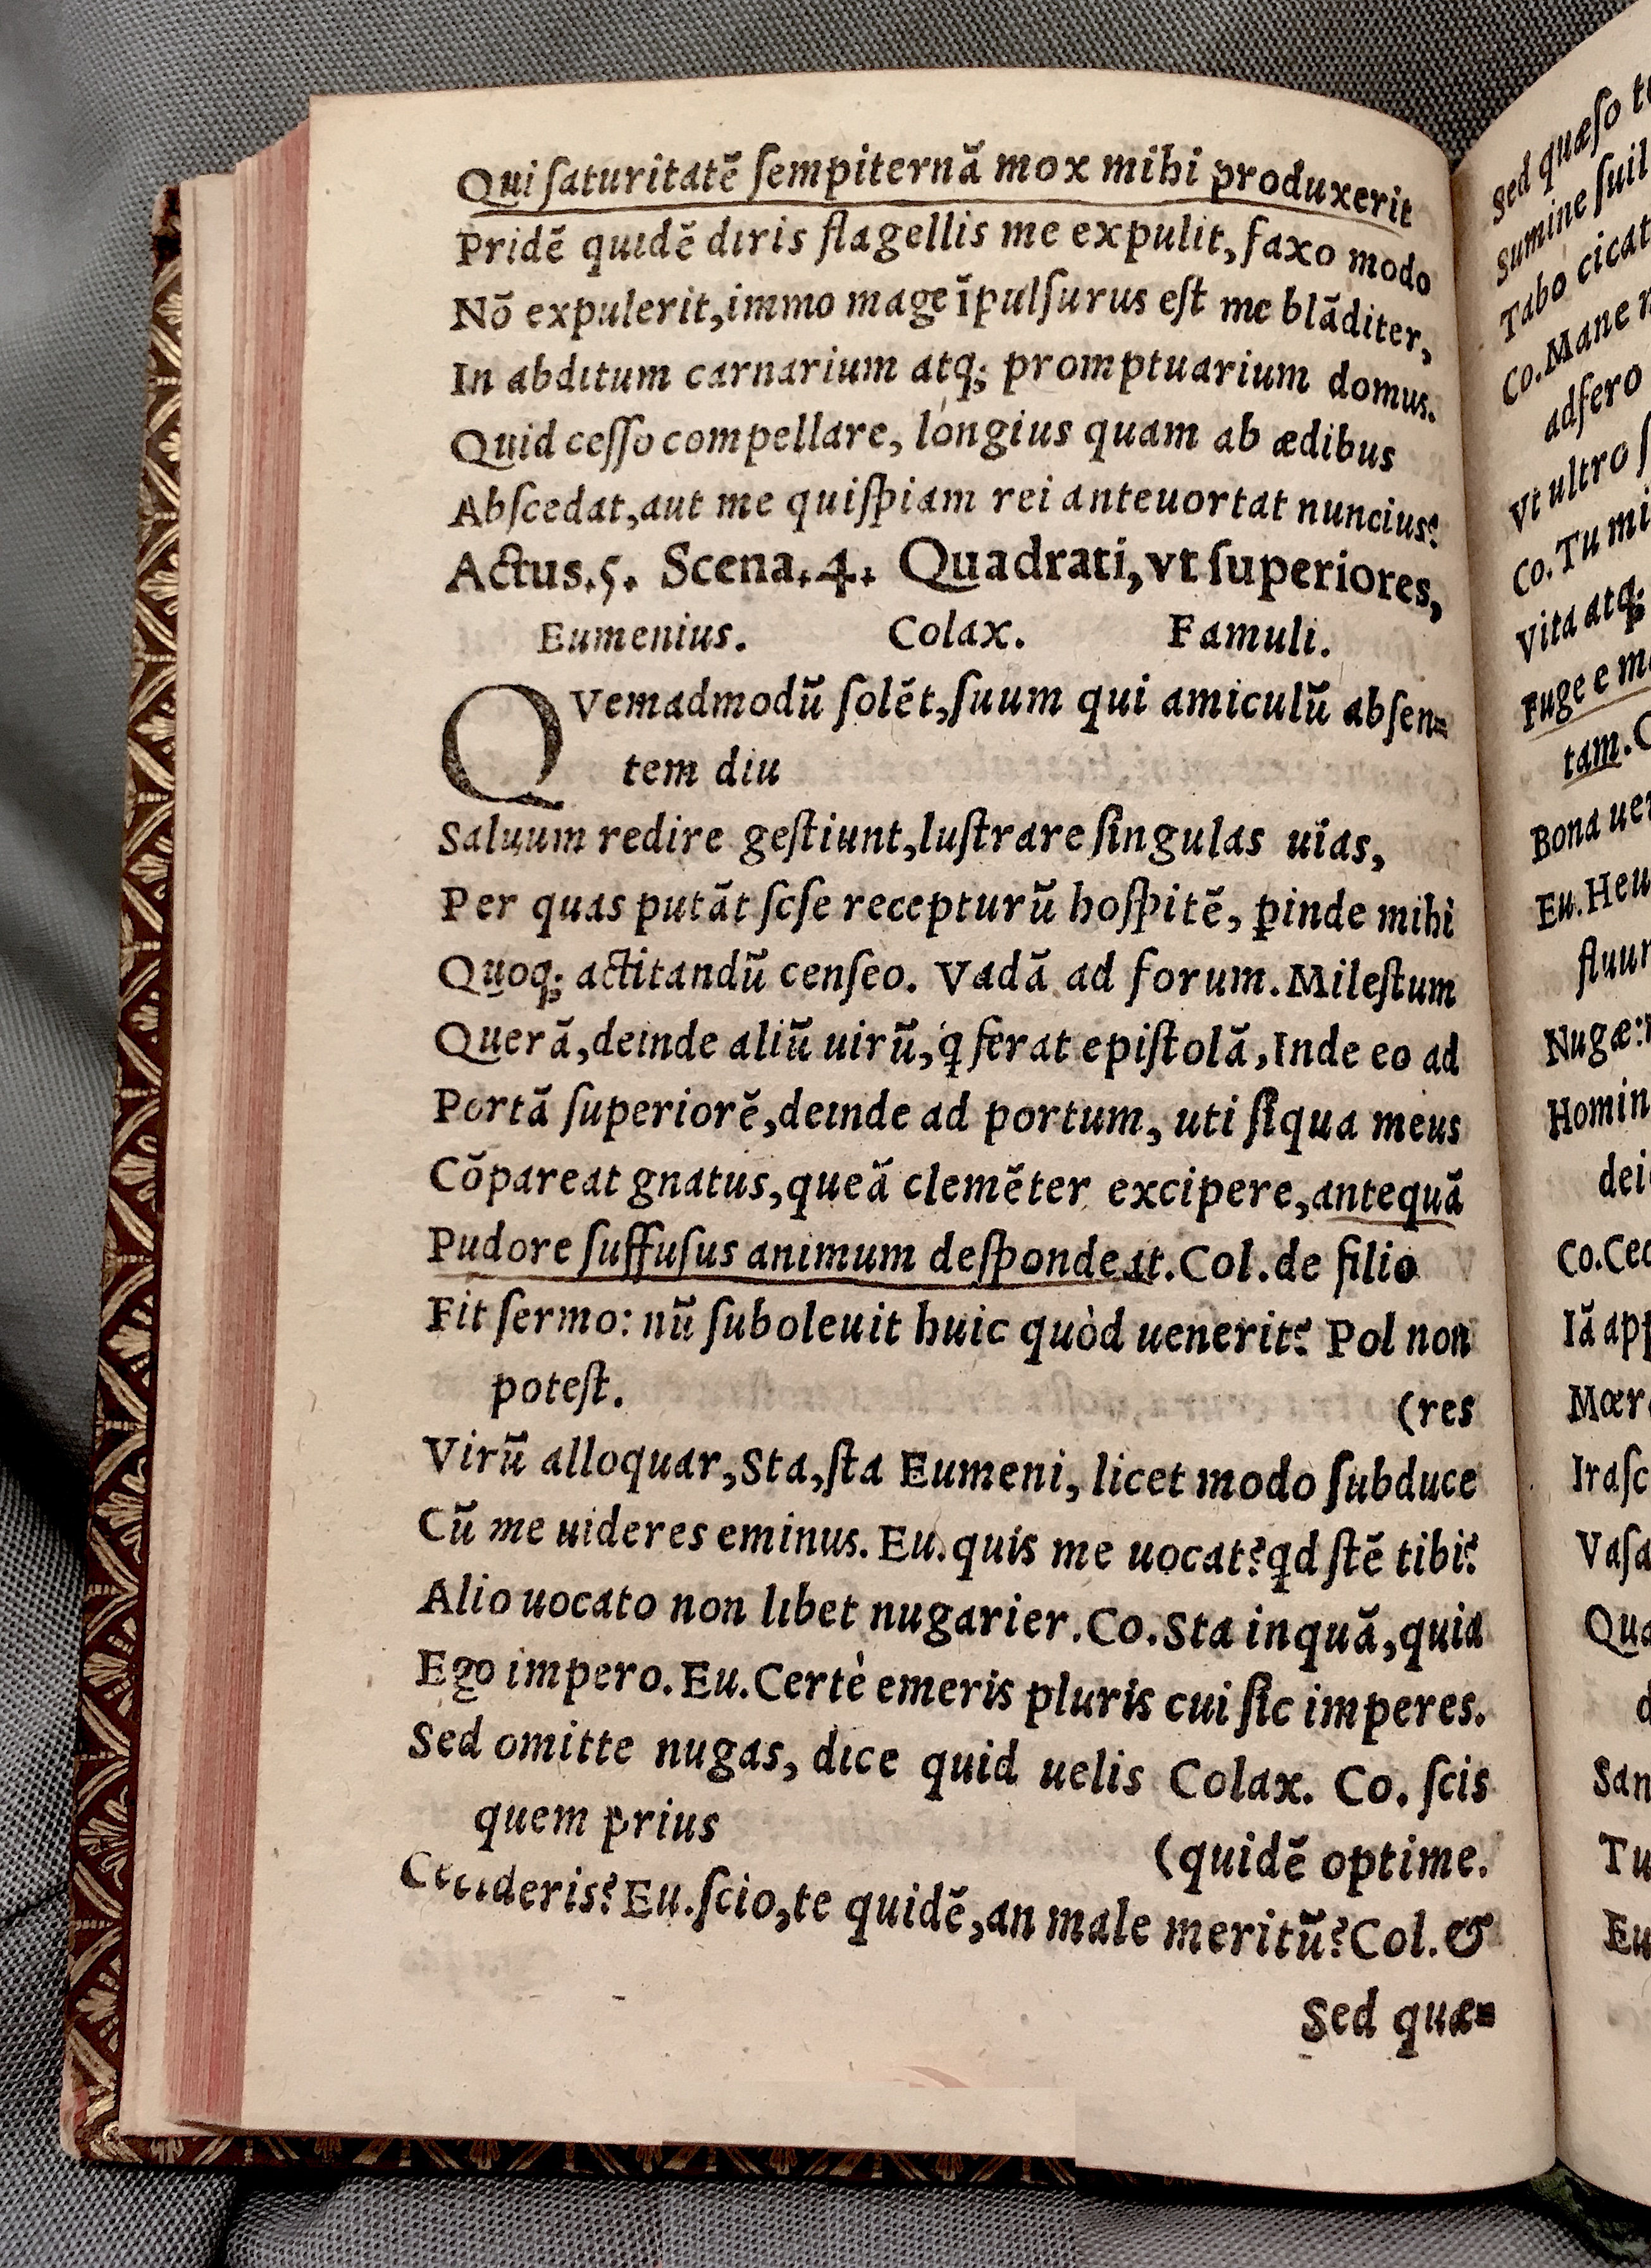 Qui ſaturitatē ſempiternā mox mihi produxerit
Pridē quidē diris flagellis me expulit, faxo modo
Nō expulerit, immo mage īpulſurus eſt me blāditer,
In abditum carnarium atq; promptuarium domus.
Quid ceſſo compellare, longius quam ab ædibus
Abſcedat, aut me quiſpiam rei anteuortat nuncius?
Actus.5. Scena.4. Quadrati, vt ſuperiores,
Eumenius. Colax. Famuli.
QVemadmodū ſolēt, ſuum qui amiculū abſen=
tem diu
Saluum redire geſtiunt, luſtrare ſingulas uias,
Per quas putāt ſeſe recepturū hoſpitē, ꝓinde mihi
Quoq; actitandū cenſeo. Vadā ad forum. Mileſtum
Querā, deinde aliū uirū, q̇ ferat epiſtolā, Inde eo ad
Portā ſuperiorē, deinde ad portum, uti ſiqua meus
Cōpareat gnatus, queā clemēter excipere, antequā
Pudore ſuffuſus animum deſpondeat. Col. de filio
Fit ſermo: nū ſuboleuit huic quòd uenerit? Pol non
poteſt. (res
Virū alloquar, Sta, ſta Eumeni, licet modo ſubduce
Cū me uideres eminus. Eu. quis me uocat? qd ſtē tibi?
Alio uocato non libet nugarier. Co. Sta inquā, quia
Ego impero. Eu. Certè emeris pluris cui ſic imperes.
Sed omitte nugas, dice quid uelis Colax. Co. ſcis
quem prius (quidē optime.
Eu. ſcio, te quidē, an male meritū? Col. &
Sed quæ=
Sed quæſo
Sumine
Tabo
Co. Mane
adfero
Vt ultro
Co. Tu
Vita atq;
Fuge e
tam.
Bona
Eu. Heu
Nugæ:
Co.
Iā
Tu